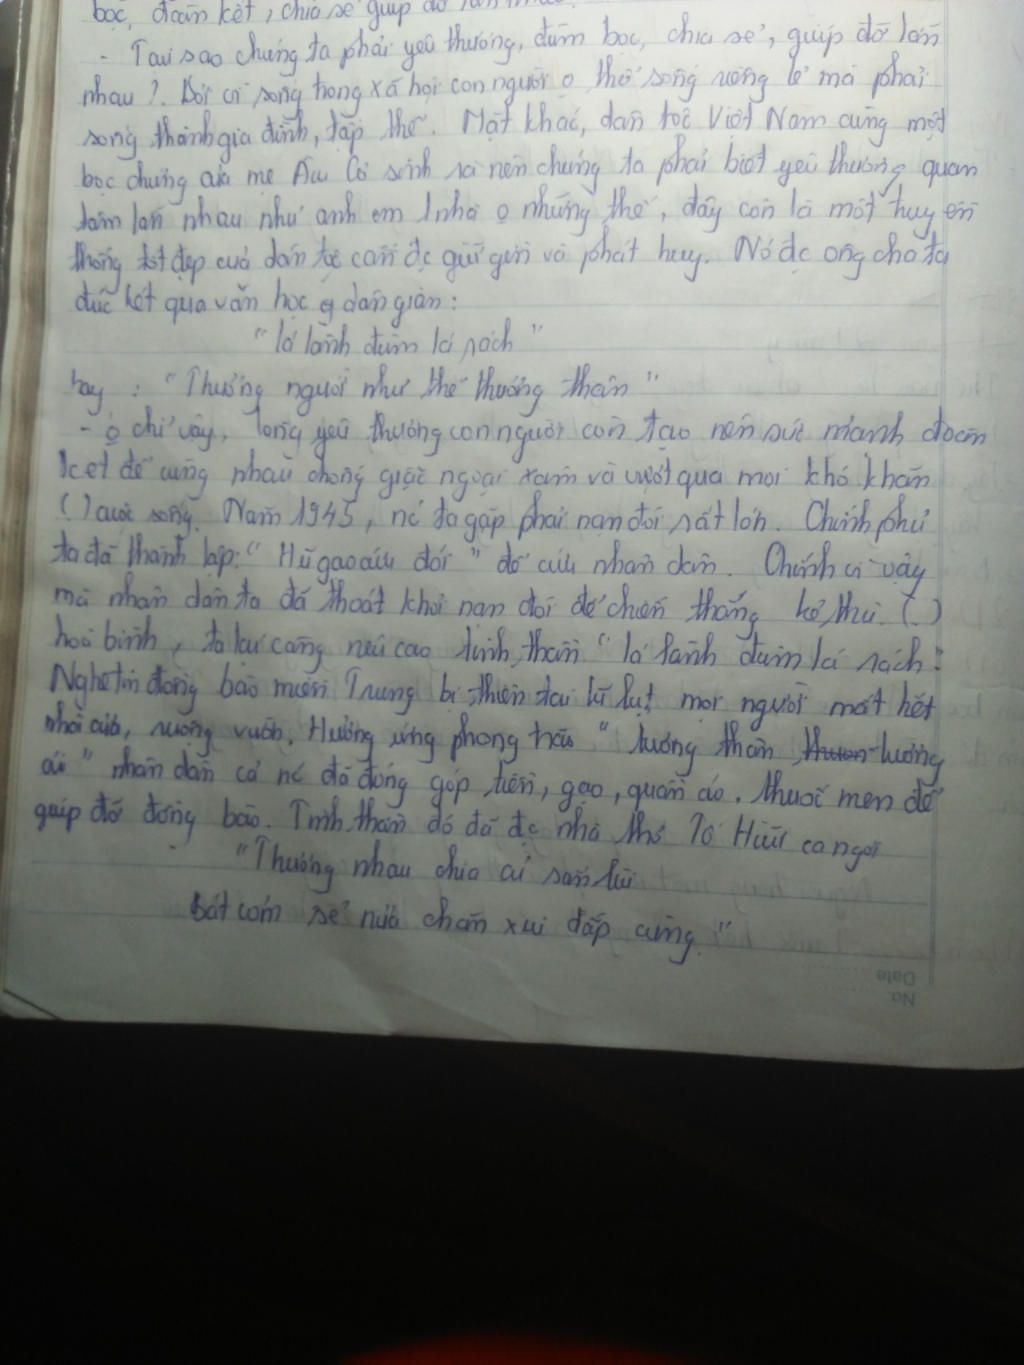 bọc, đoàn kết, chia sẻ giúp đỡ lẫn nhau.
- Tại sao chúng ta phải yêu thương, đùm bọc, chia sẻ, giúp đỡ lẫn
nhau ?. Bởi vì sống trong xã hội con người o thể sống riêng lẻ mà phải
sống thành gia đình, tập thể. Mặt khác, dân tộc Việt Nam cùng một
bọc chung của mẹ Âu Cơ sinh ra nên chúng ta phải biết yêu thương quan
tâm lẫn nhau như anh em 1 nhà o những thế, đây còn là một truyền
thống tốt đẹp của dân tộc cần đc giữ gìn và phát huy. Nó đc ông cha ta
đúc kết qua văn học dân gian :
" lá lành đùm lá rách "
hay : " Thương người như thể thương thân "
- o chỉ vậy, lòng yêu thương con người còn tạo nên sức mạnh đoàn
kết để cùng nhau chống giặc ngoại xâm và vượt qua mọi khó khăn
( ) cuộc sống. Năm 1945, nc ta gặp phải nạn đói rất lớn. Chính phủ
ta đã thành lập: " Hũ gạo cứu đói " để cứu nhân dân. Chính vì vậy
mà nhân dân ta đã thoát khỏi nạn đói để chiến thắng kẻ thù. ( )
hoà bình, ta lại càng nêu cao tinh thần " lá lành đùm lá rách "
Nghe tin đồng bào miền Trung bị thiên tai lũ lụt mọi người mất hết
nhà cửa, ruộng vườn. Hưởng ứng phong trào " tương thân tương
ái " nhân dân cả nc đã đóng góp tiền, gạo, quần áo, thuốc men để
giúp đỡ đồng bào. Tinh thần đó đã đc nhà thơ Tố Hữu ca ngợi
" Thương nhau chia củ sắn lùi
Bát cơm sẻ nửa chăn xui đắp cùng "
No.
Date